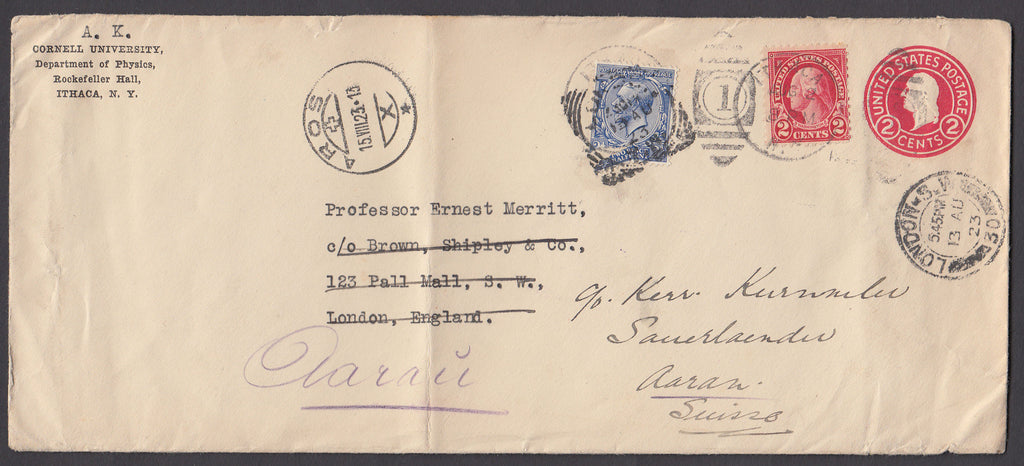 A. K.
CORNELL UNIVERSITY,
Department of Physics,
Rockefeller Hall,
ITHACA, N. Y.
15.VIII.23
X
UNITED STATES POSTAGE
2 CENTS 2
1
UNITED STATES POSTAGE
2 CENTS 2
LONDON. S.W.
5.45PM
13 AU
23
Professor Ernest Merritt,
c/o Brown, Shipley & Co.,
123 Pall Mall, S. W.,
London, England.
c/o. Herr.
Sauerlaender
Aarau.
Suisse
Aarau